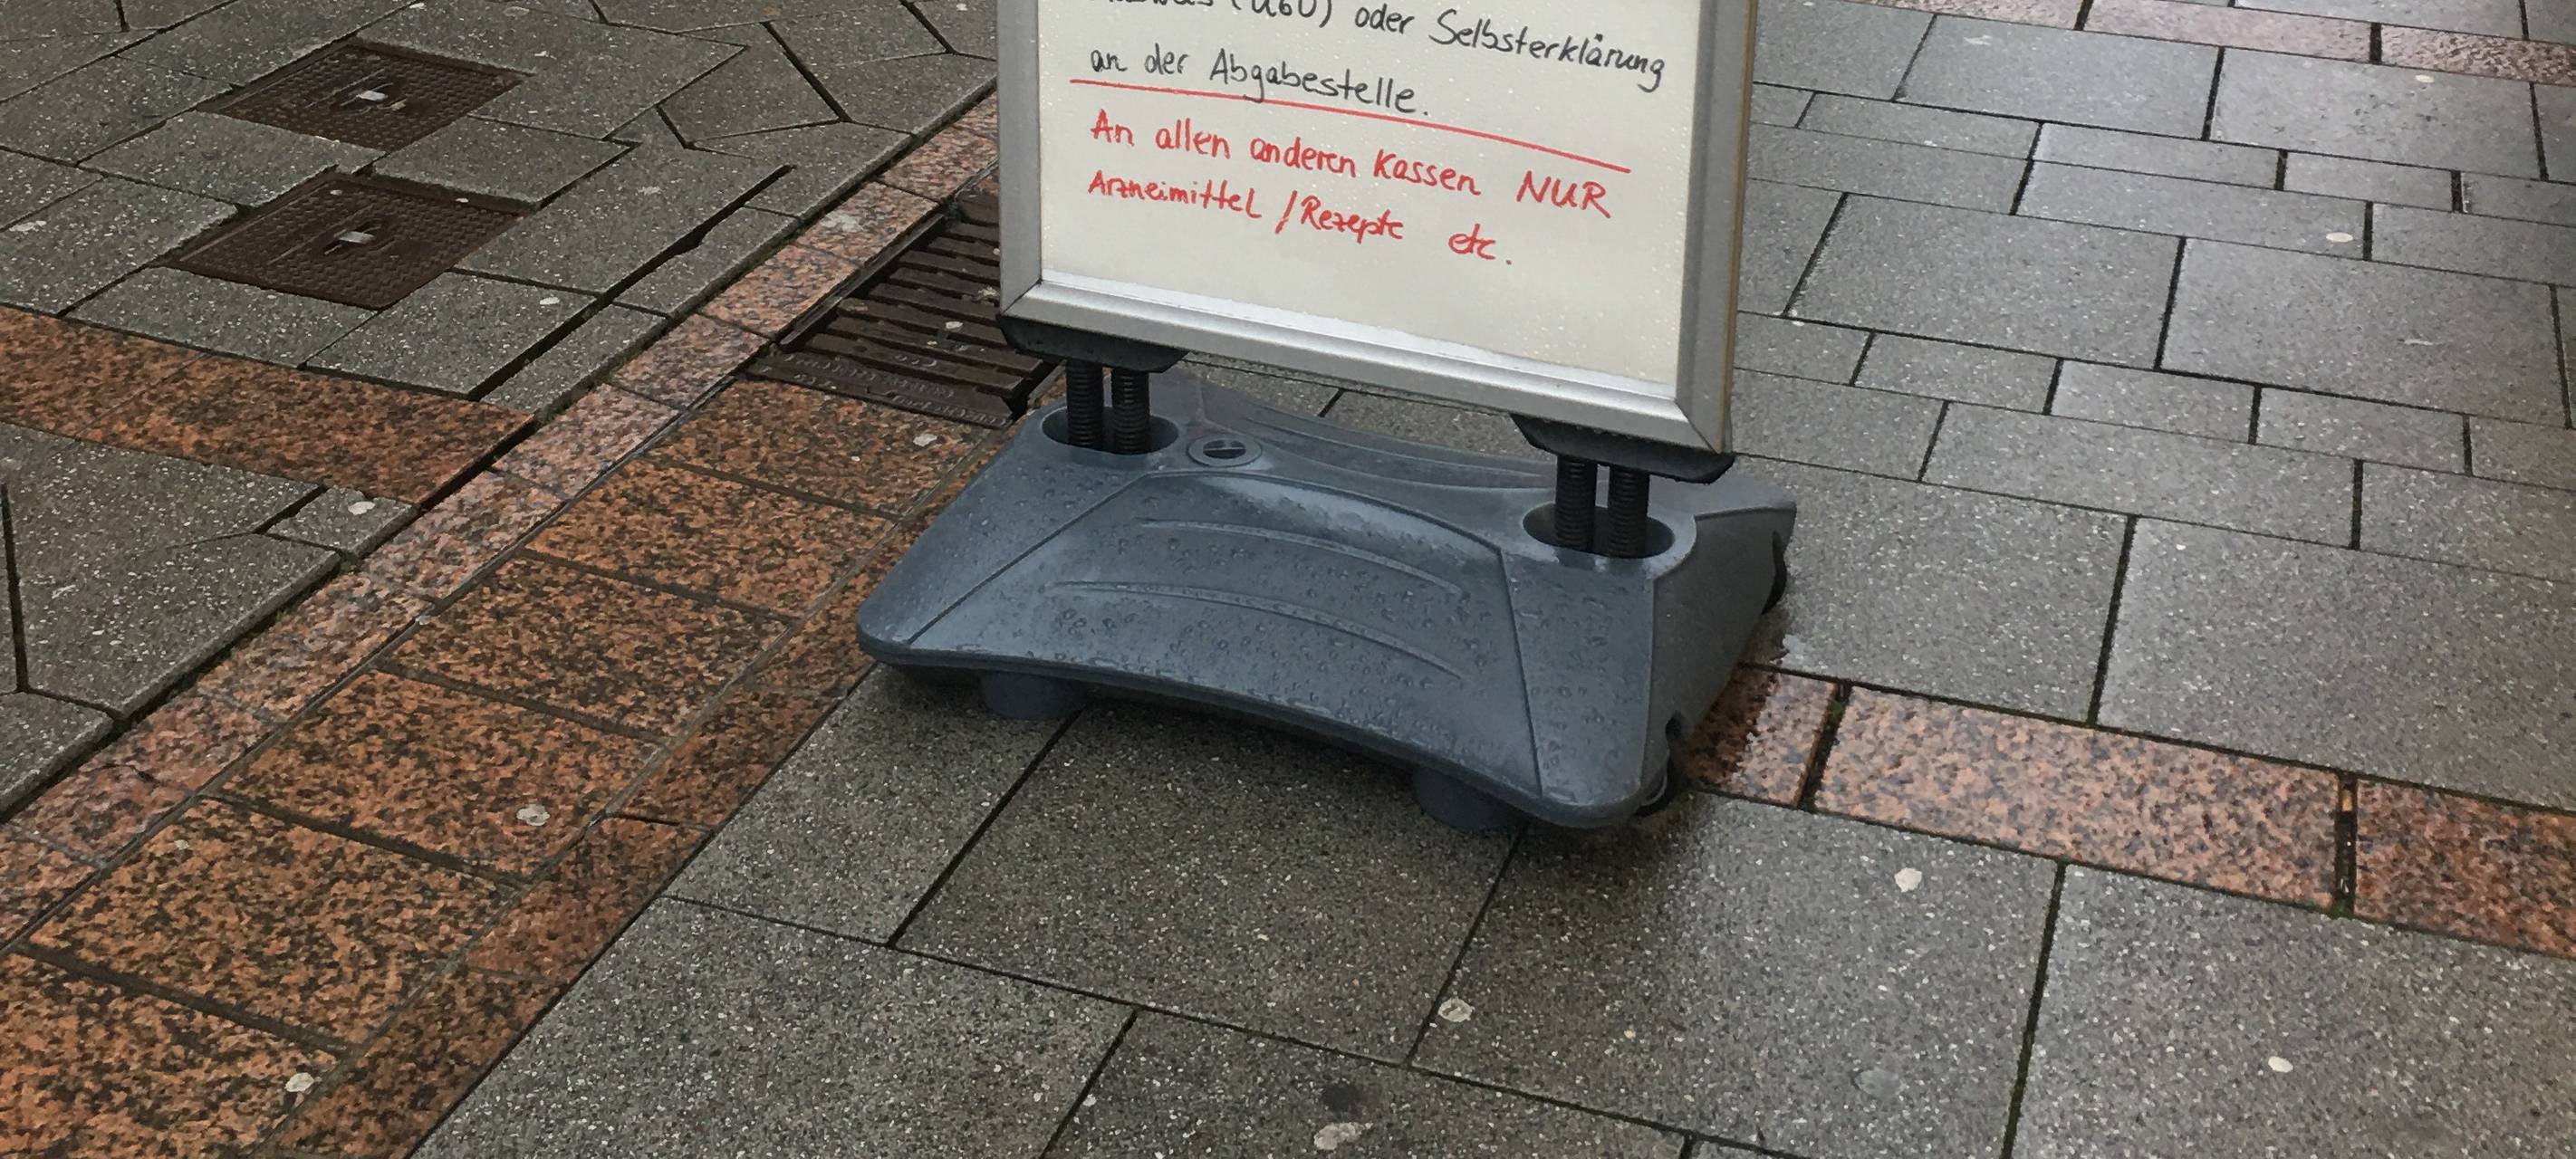 (Ü60) oder Selbsterklärung
an der Abgabestelle.
An allen anderen Kassen NUR
Arzneimittel / Rezepte etc.